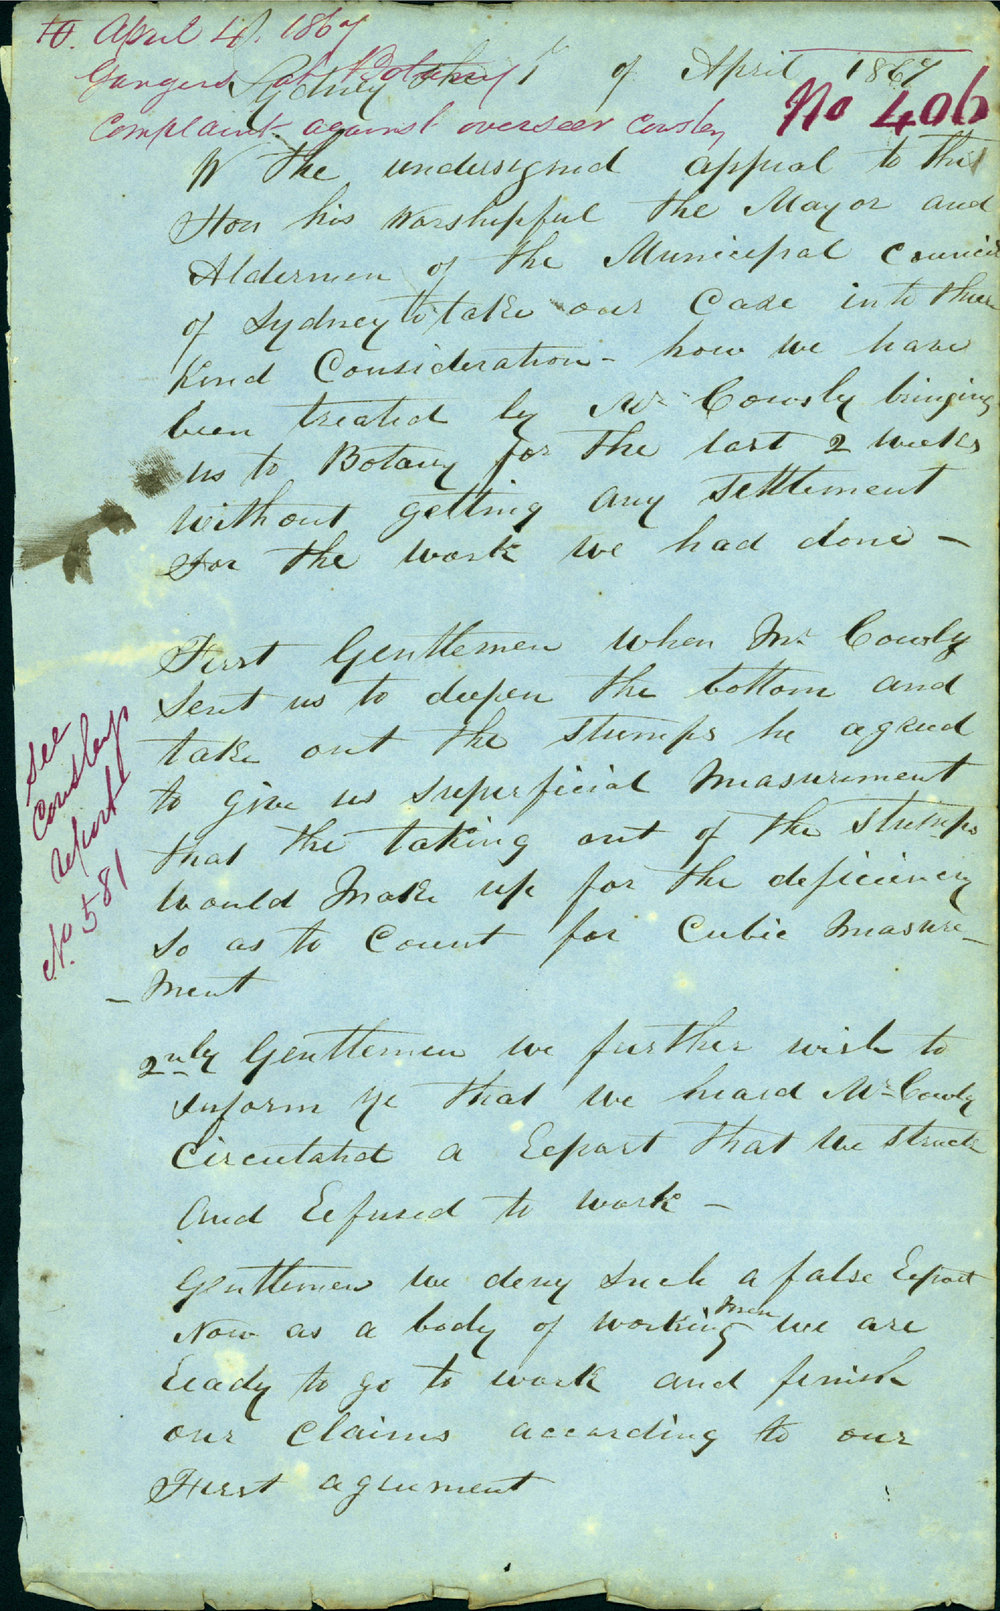 April 4. 1867
Gangers at Botany
Complaint against overseer Cowsley
No 406
Sydney the of April 1867
W the undersigned appeal to the
Hon his Worshipful the Mayor and
Aldermen of the Municipal Council
of Sydney to take our Case into their
Kind Consideration - how we have
been treated by Mr Cowsly bringing
us to Botany for the last 2 weeks
without getting any settlement
For the work we had done -
First Gentlemen when Mr Cowsly
Sent us to deepen the bottom and
take out the stumps he agreed
to give us superficial Measurement
that the taking out of the stumps
would Make up for the deficiency
So as to Count for Cubic Measure-
- Ment
See
Cowsley
report
No 581
2nly Gentlemen we further wish to
inform ye that we heard Mr Cowsly
Circulated a Report that we struck
And Refused to work -
Gentlemen we deny such a false Report
Now as a body of working men we are
Ready to go to work and finish
our Claims according to our
First agreement